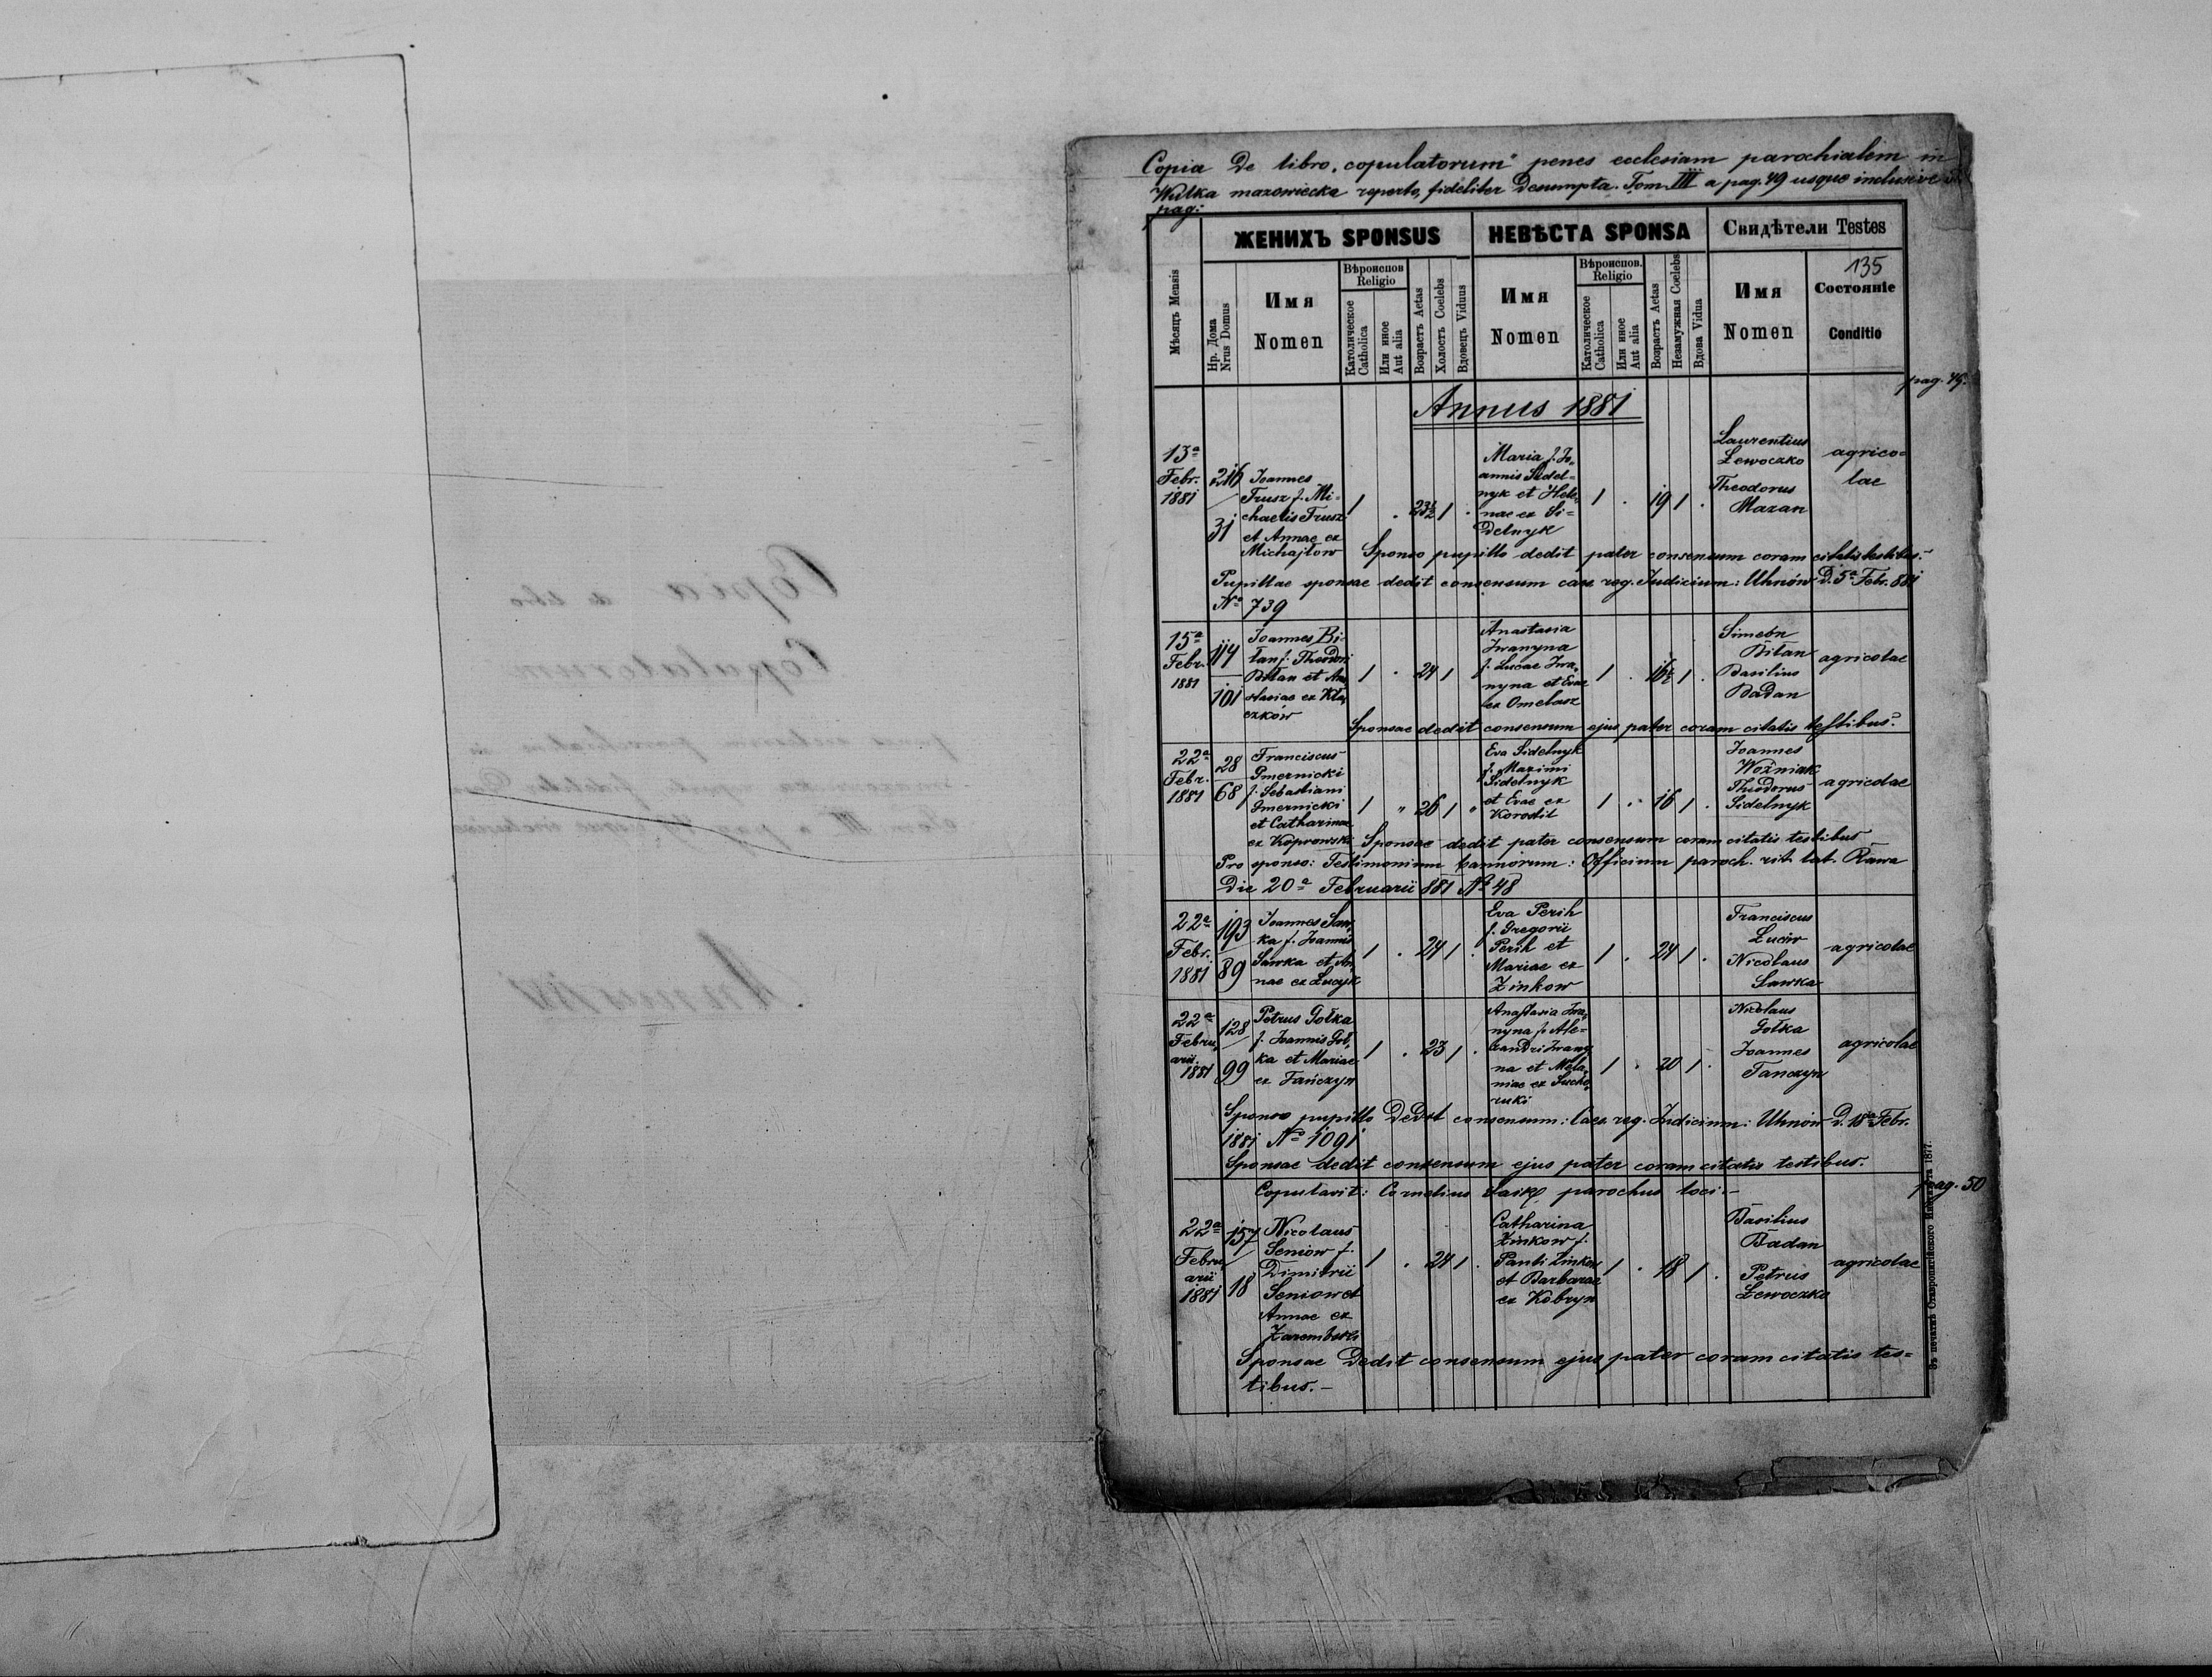 Copia de libro „copulatorum" penes ecclesiam parochialem in
Wulka mazowiecka reperto, fideliter desumpta. Tom. III a pag. 49 usque inclusive
pag:
ЖЕНИХЪ SPONSUS
НЕВѢСТА SPONSA
Свидѣтели Testes
Мѣсяцъ Mensis
Нр. Дома
Nrus Domus
Имя
Nomen
Вѣроиспов
Religio
Католическое
Catholica
Или иное
Aut alia
Возрастъ Aetas
Холостъ Coelebs
Вдовецъ Viduus
Имя
Nomen
Вѣроиспов.
Religio
Католическое
Catholica
Или иное
Aut alia
Возрастъ Aetas
Незамужная Coelebs
Вдова Vidua
Имя
Nomen
135
Состояніе
Conditio
pag. 49.
Annus 1881
13ª
Febr.
1881
216
31
Joannes
Trusz f. Mi-
chaelis Trusz
et Annae ex
Michajlow
1 . 23½ 1 .
Maria f. Jo-
annis Sidel-
nyk et Hele-
nae ex Si-
delnyk
1 . 19 1 .
Laurentius
Lewoczko
Theodorus
Mazan
agrico-
lae
Sponso pupillo dedit pater consensum coram citatis testibus.-
Pupillae sponsae dedit consensum caes. reg. Judicium: Uhnów d. 5ª Febr. 881
Nº 739
15ª
Febr.
1881
114
101
Joannes Bi-
lan f. Theodori
Bilan et Ana-
stasiae ex Kla-
czków
1 . 24 1
Anastasia
Iwanyna
f. Lucae Iwa-
nyna et Evae
ex Omelasz
1 . 16½ 1 .
Simeon
Bilan
Basilius
Badan
agricolae
Sponsae dedit consensum ejus pater coram citatis testibus.
22ª
Febr.
1881
28
68
Franciscus
Gmernicki
f. Sebastiani
Gmernicki
et Catharinae
ex Koprowski
1 " 26 1 "
Eva Sidelnyk
f. Maximi
Sidelnyk
et Evae ex
Korodil
1 . 16 1 .
Joannes
Woźniak
Theodorus
Sidelnyk
agricolae
Sponsae dedit pater consensum coram citatis testibus
Pro sponso: Testimonium bannorum: Officium paroch. rit. lat. Rawa
Die 20ª Februarii 881 Nº 48
22ª
Febr.
1881
193
89
Joannes Saw-
ka f. Joannis
Sawka et An-
nae ex Lucyk
1 . 24 1 .
Eva Perih
f. Gregorii
Perih et
Mariae ex
Zinkow
1 . 24 1 .
Franciscus
Luciw
Nicolaus
Sawka
agricolae
22ª
Febru-
arii
1881
128
99
Petrus Gołka
f. Joannis Goł-
ka et Mariae
ex Tańczyn
1 . 23 1 .
Anastasia Iwa-
nyna f. Ale-
xandri Iwany-
na et Mela-
niae ex Sucho-
ruki
1 . 20 1 .
Nicolaus
Gołka
Joannes
Tanczyn
agricolae
Sponso pupillo dedit consensum: Caes. reg. Judicium: Uhnów d. 18ª Febr.
1881 Nº 1091
Sponsae dedit consensum ejus pater coram citatis testibus.
Copulavit: Cornelius parochus loci.-
pag. 50
22ª
Febru-
arii
1881
157
18
Nicolaus
Seniow f.
Dimitrii
Seniow et
Annae ex
Zarembski
1 . 24 1 .
Catharina
Zinkow f.
Pauli Zinkow
et Barbarae
ex Kobryn
1 . 18 1 .
Basilius
Badan
Petrus
Lewoczko
agricolae
Sponsae dedit consensum ejus pater coram citatis tes-
tibus.-
Въ печатнѣ Ставропигійского Института 1877.